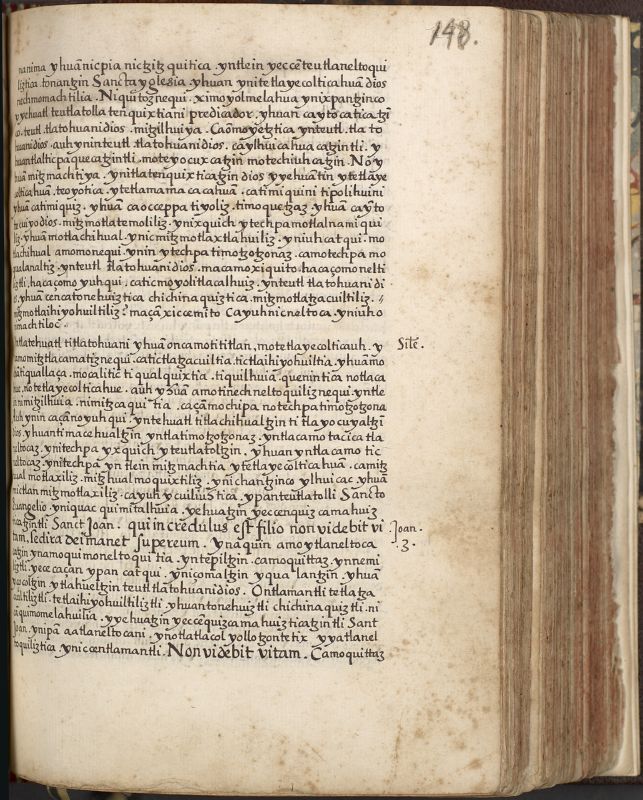 148.
nanima yhuā nicpia nictzitzquitica. yntlein yeccēteutlaneltoqui
liztica. tonantzin Sancta yglesia yhuan ynitetlayecolticahuā dios
nechmomachtilia. Niquitoznequi. ximoyolmelahua ynixpantzinco
yyehuatl teutlatolla tenquixtiani predicador. yhuan caytocaticatzi
co. teutl. tlatohuani dios. mitzilhuiya. Caōmoyetztica ynteutl. tlato
huani dios. auh yninteutl tlatohuani dios. caylhuicahua catzintli. y
huan tlalticpaque catzintli. moteyocuxcatzin motechiuhcatzin. No y
huā mitzmachtiya. ynitlatenquixticatzin dios yyehuātin ytetlaye
colticahuā. teoyotica. ytetlamamacacahuā. catimiquini tipolihuini
yhuā catimiquiz. yhuā caocceppa tiyoliz. timoquetzaz. yhuā cayto
tecuiyo dios. mitzmotlatemoliliz. ynixquich ytechpa motlalnamiqui
liz. yhuā motlachihual. ynic mitzmotlaxtlahuiliz. yniuhcat qui. mo
tlachihual amomonequi. ynin ytechpa timotzotzonaz. camotechpa mo
qualaniltiz. ynteutl tlatohuani dios. macamo xiquito. hacaçomo nelti
liztli, hacaçomo yuhqui, catic moyolitlacalhuiz. ynteutl tlatohuani di
os. yhuā cencatonehuiztica chichinaquiztica. mitzmotlatzacuiltiliz.
mitzmotlaihiyohuiltiliz? maçā xicemito Cayuhnicneltoca. yniuh o
nimachtiloc.
Intlatehuatl titlatohuani yhuā oncamotititlan, motetlayecolticauh. y Site.
amomitztlacamatiznequi. catictlatzacuiltia. tictlaihiyohuiltia. yhuā mo
ca tiquallaça. mocalitic tiqualquixtia. tiquilhuia. quenintica notlaca
hue. notetlayecolticahue. auh yhuā amotinechneltoquiliznequi. yntle
in nimitzilhuia. nimitzcaquitia. caçāmochipa notechpa timotzotzona
auh ynin caçāno yuhqui. yntehuatl titlachihualtzin titlayocuyaltzi
dios. yhuan timacehualtzin. yntlatimotzotzonaz. yntlacamo tacicatla
neltocaz. ynitechpa yxquich. yteutlatoltzin. yhuan yntlacamo tic
neltocaz. ynitechpa yntlein mitzmachtia ytetlayecolticahuā. camitz
hual motlaxiliz. mitzhualmoquixtiliz. ynichantzinco ylhuicac yhuā
mictlan mitzmotlaxiliz. cayuh ycuiliuhtica. ypan teutlatolli Sancto
Euangelio. yniquac quimitalhuia. yehuatzin yeccenquizcamahuiz
ticatzintli Sanct Joan. qui incredulus est filio non videbit vi Joan.
tam, sed ira dei manet super eum. Ynaquin amo ytlaneltoca 3.
catzin ynamo quimoneltoquitia. yntepiltzin. camo quittaz ynnemi
liztli. yece caçan ypan cat qui. ynicomaltzin yqualantzin. yhuā
ycocoltzin ytlahueltzin teutl tlatohuani dios. Ontlamantli tetlatza
cuiltiliztli. tetlaihiyohuiltiliztli yhuan tonehuiztli chichinaquiztli. ni
cā quimomelahuilia. yyehuatzin yeccēquizcamahuizticatzintli Sant
Joan, ynipā aatlaneltocani. ynotlatlacol yollotzontetix yyatlanel
toquiliztica ynic centlamantli. Non videbit vitam. Camo quittaz